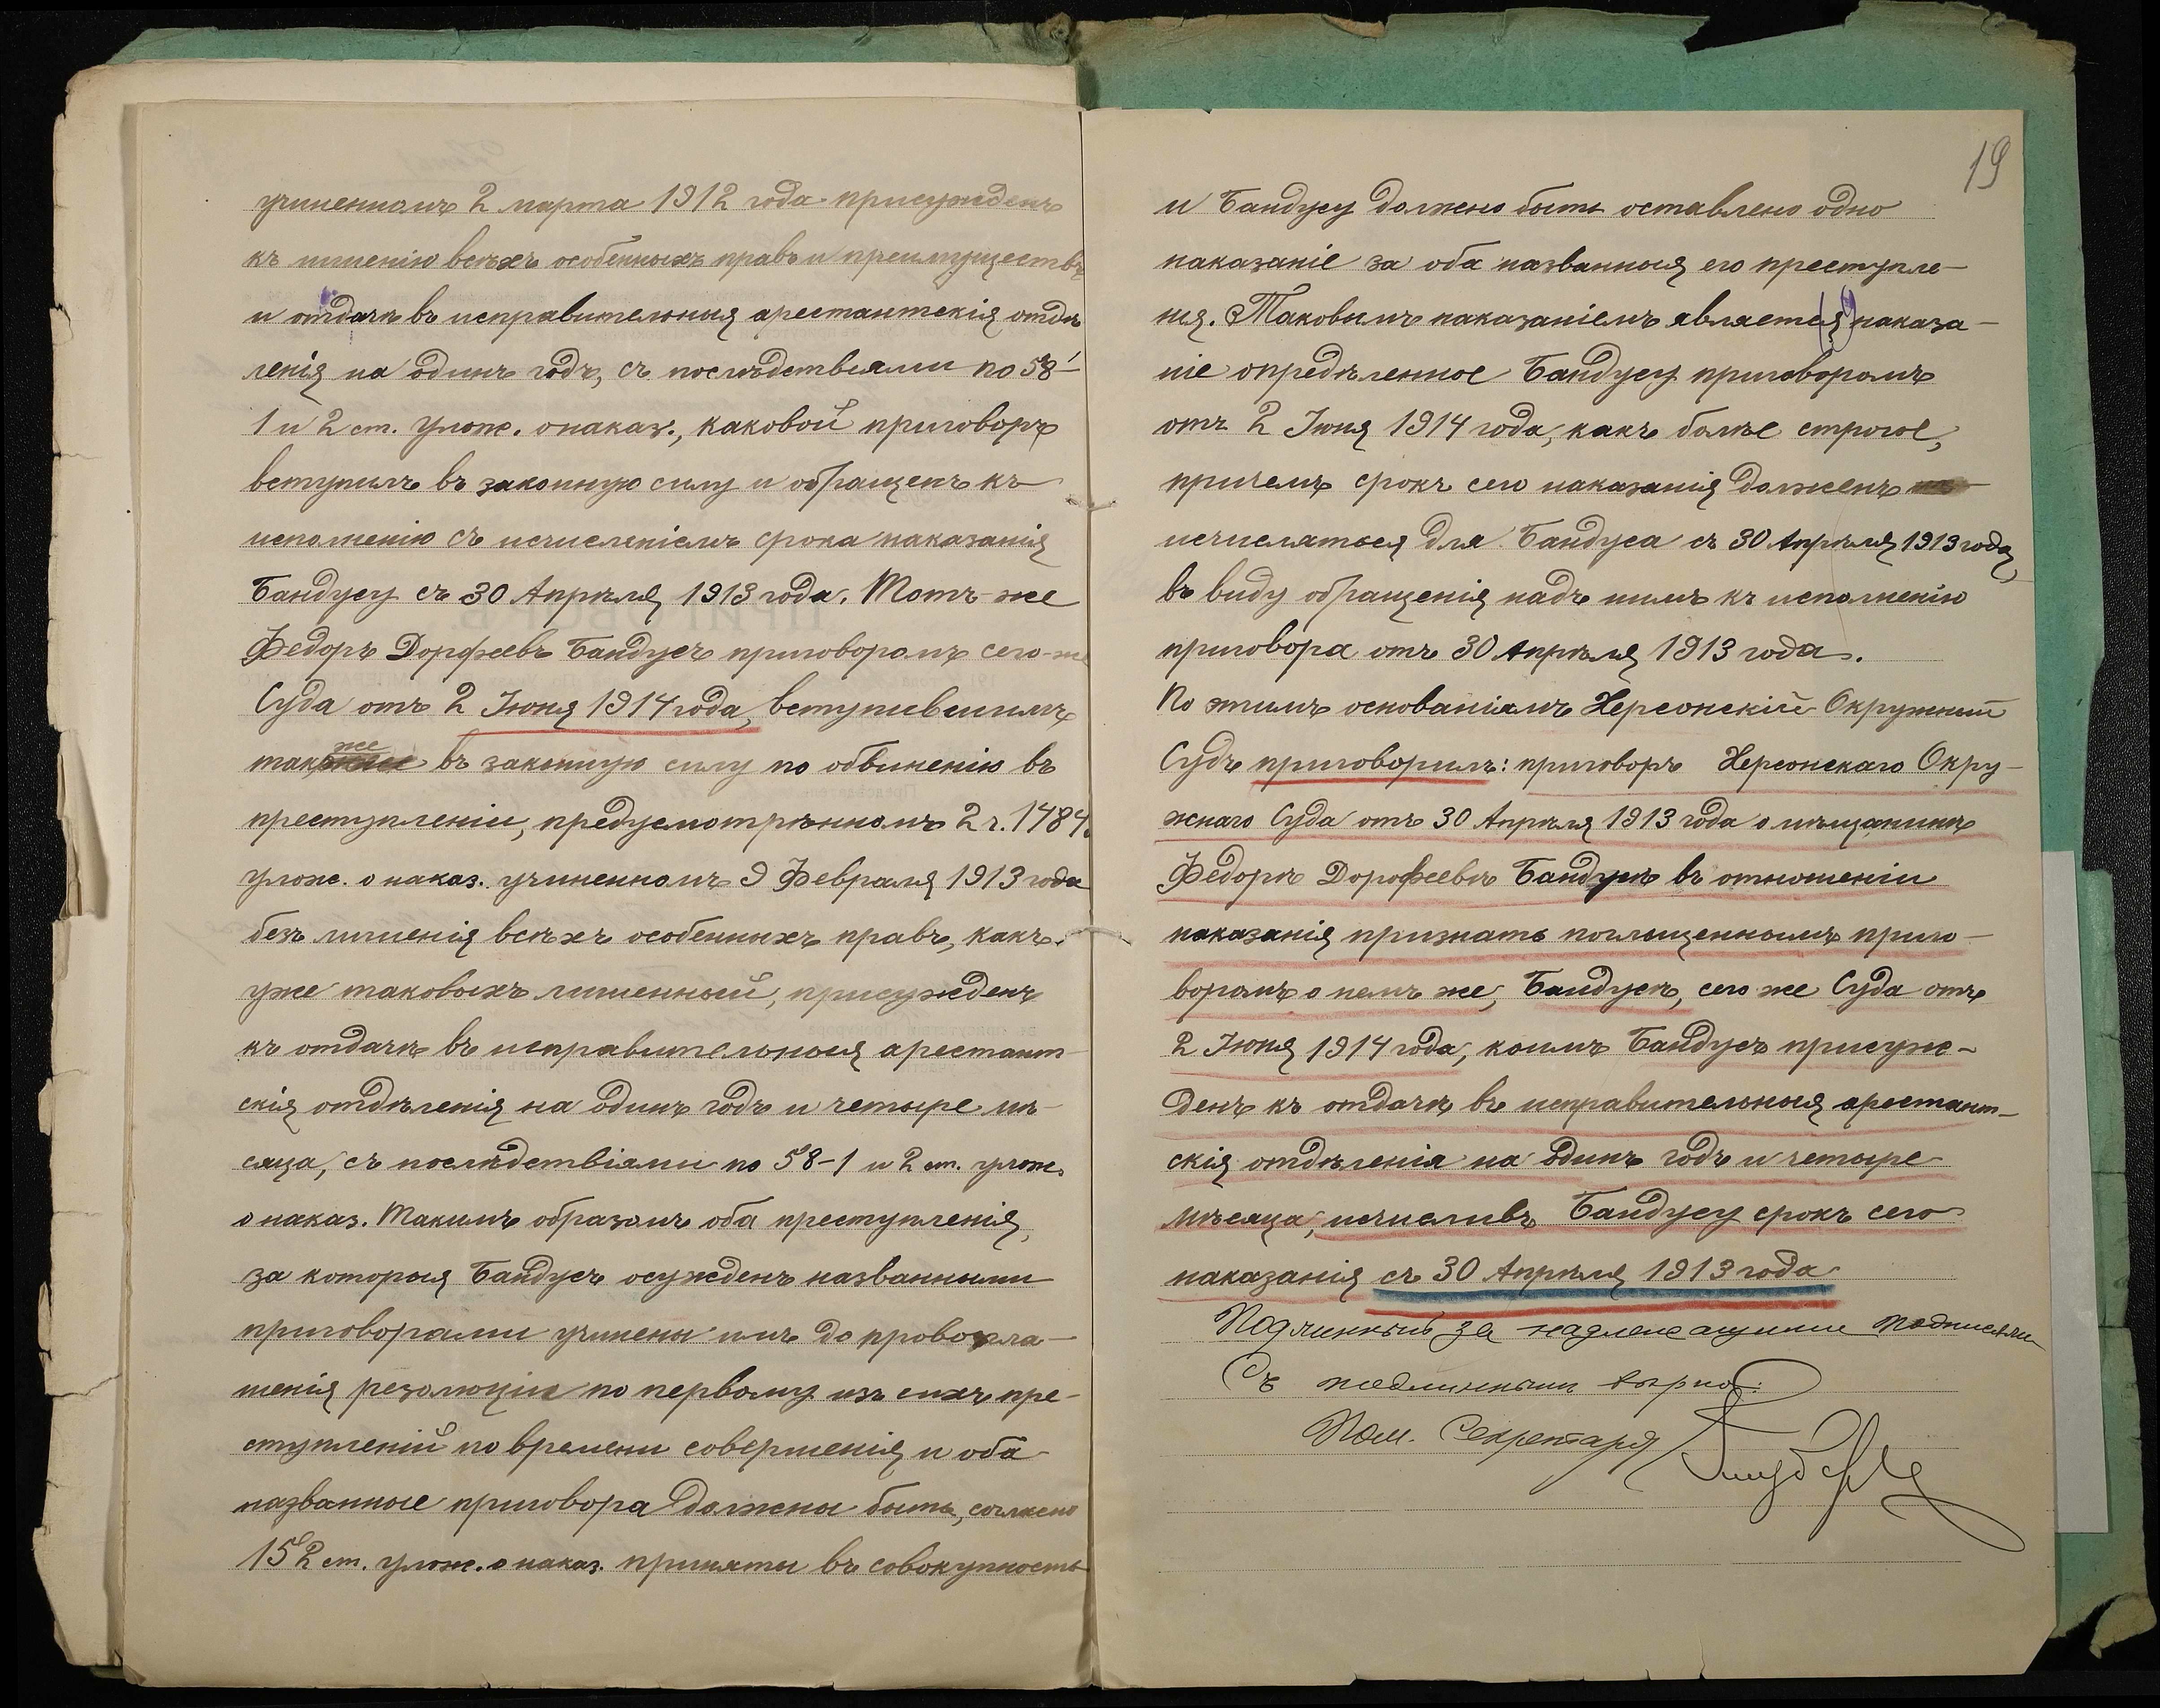 учиненномъ 2 марта 1912 года присужденъ
къ лишенію всѣхъ особенныхъ правъ и преимуществъ
и отдачѣ въ исправительныя арестантскія отдѣ
ленія на одинъ годъ, съ послѣдствіями по 58-
1 и 2 ст. улож. о наказ., каковой приговоръ
вступилъ въ законную силу и обращенъ къ
исполненію съ исчисленіемъ срока наказанія
Бандусу съ 30 Апрѣля 1913 года. Тотъ-же
Федоръ Дорофеевъ Бандусъ приговоромъ сего-же
Суда отъ 2 Іюня 1914 года, вступившимъ
также въ законную силу по обвиненію въ
преступленіи, предусмотрѣнномъ 2 ч. 1484
улож. о наказ. учиненномъ 9 Февраля 1913 года
безъ лишенія всѣхъ особенныхъ правъ, какъ
уже таковыхъ лишенный, присужденъ
къ отдачѣ въ исправительныя арестант-
скія отдѣленія на одинъ годъ и четыре мѣ-
сяца, съ послѣдствіями по 58-1 и 2 ст. улож.
о наказ. Такимъ образомъ оба преступленія,
за которыя Бандусъ осужденъ названными
приговорами учинены имъ до провозгла-
шенія резолюціи по первому изъ сихъ пре-
ступленій по времени совершенія и оба
названные приговора должны быть, согласно
152 ст. улож. о наказ. приняты въ совокупность
19
и Бандусу должно быть оставлено одно
наказаніе за оба названныя его преступле-
нія. Таковымъ наказаніемъ является наказа-
19
ніе опредѣленное Бандусу приговоромъ
отъ 2 Іюня 1914 года, какъ болѣе строгое,
причемъ срокъ сего наказанія долженъ
исчисляться для Бандуса съ 30 Апрѣля 1913 года,
въ виду обращенія надъ нимъ къ исполненію
приговора отъ 30 Апрѣля 1913 года.
По этимъ основаніямъ Херсонскій Окружный
Судъ приговорилъ: приговоръ Херсонскаго Окру-
жнаго Суда отъ 30 Апрѣля 1913 года о мѣщанинѣ
Федорѣ Дорофеевѣ Бандусѣ въ отношеніи
наказанія признать поглощеннымъ приго-
воромъ о немъ же, Бандусѣ, сего же Суда отъ
2 Іюня 1914 года, коимъ Бандусъ присуж-
денъ къ отдачѣ въ исправительныя арестант-
скія отдѣленія на одинъ годъ и четыре
мѣсяца, исчисливъ Бандусу срокъ сего
наказанія съ 30 Апрѣля 1913 года.
Подлинный за надлежащими подписями
Съ подлиннымъ вѣрно:
Пом. Секретаря